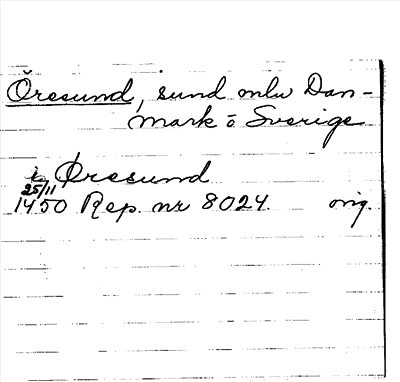 Öresund, sund mlw Dan-
mark o Sverige
i Øresund
25/11
1450 Rep. nr 8024. orig.